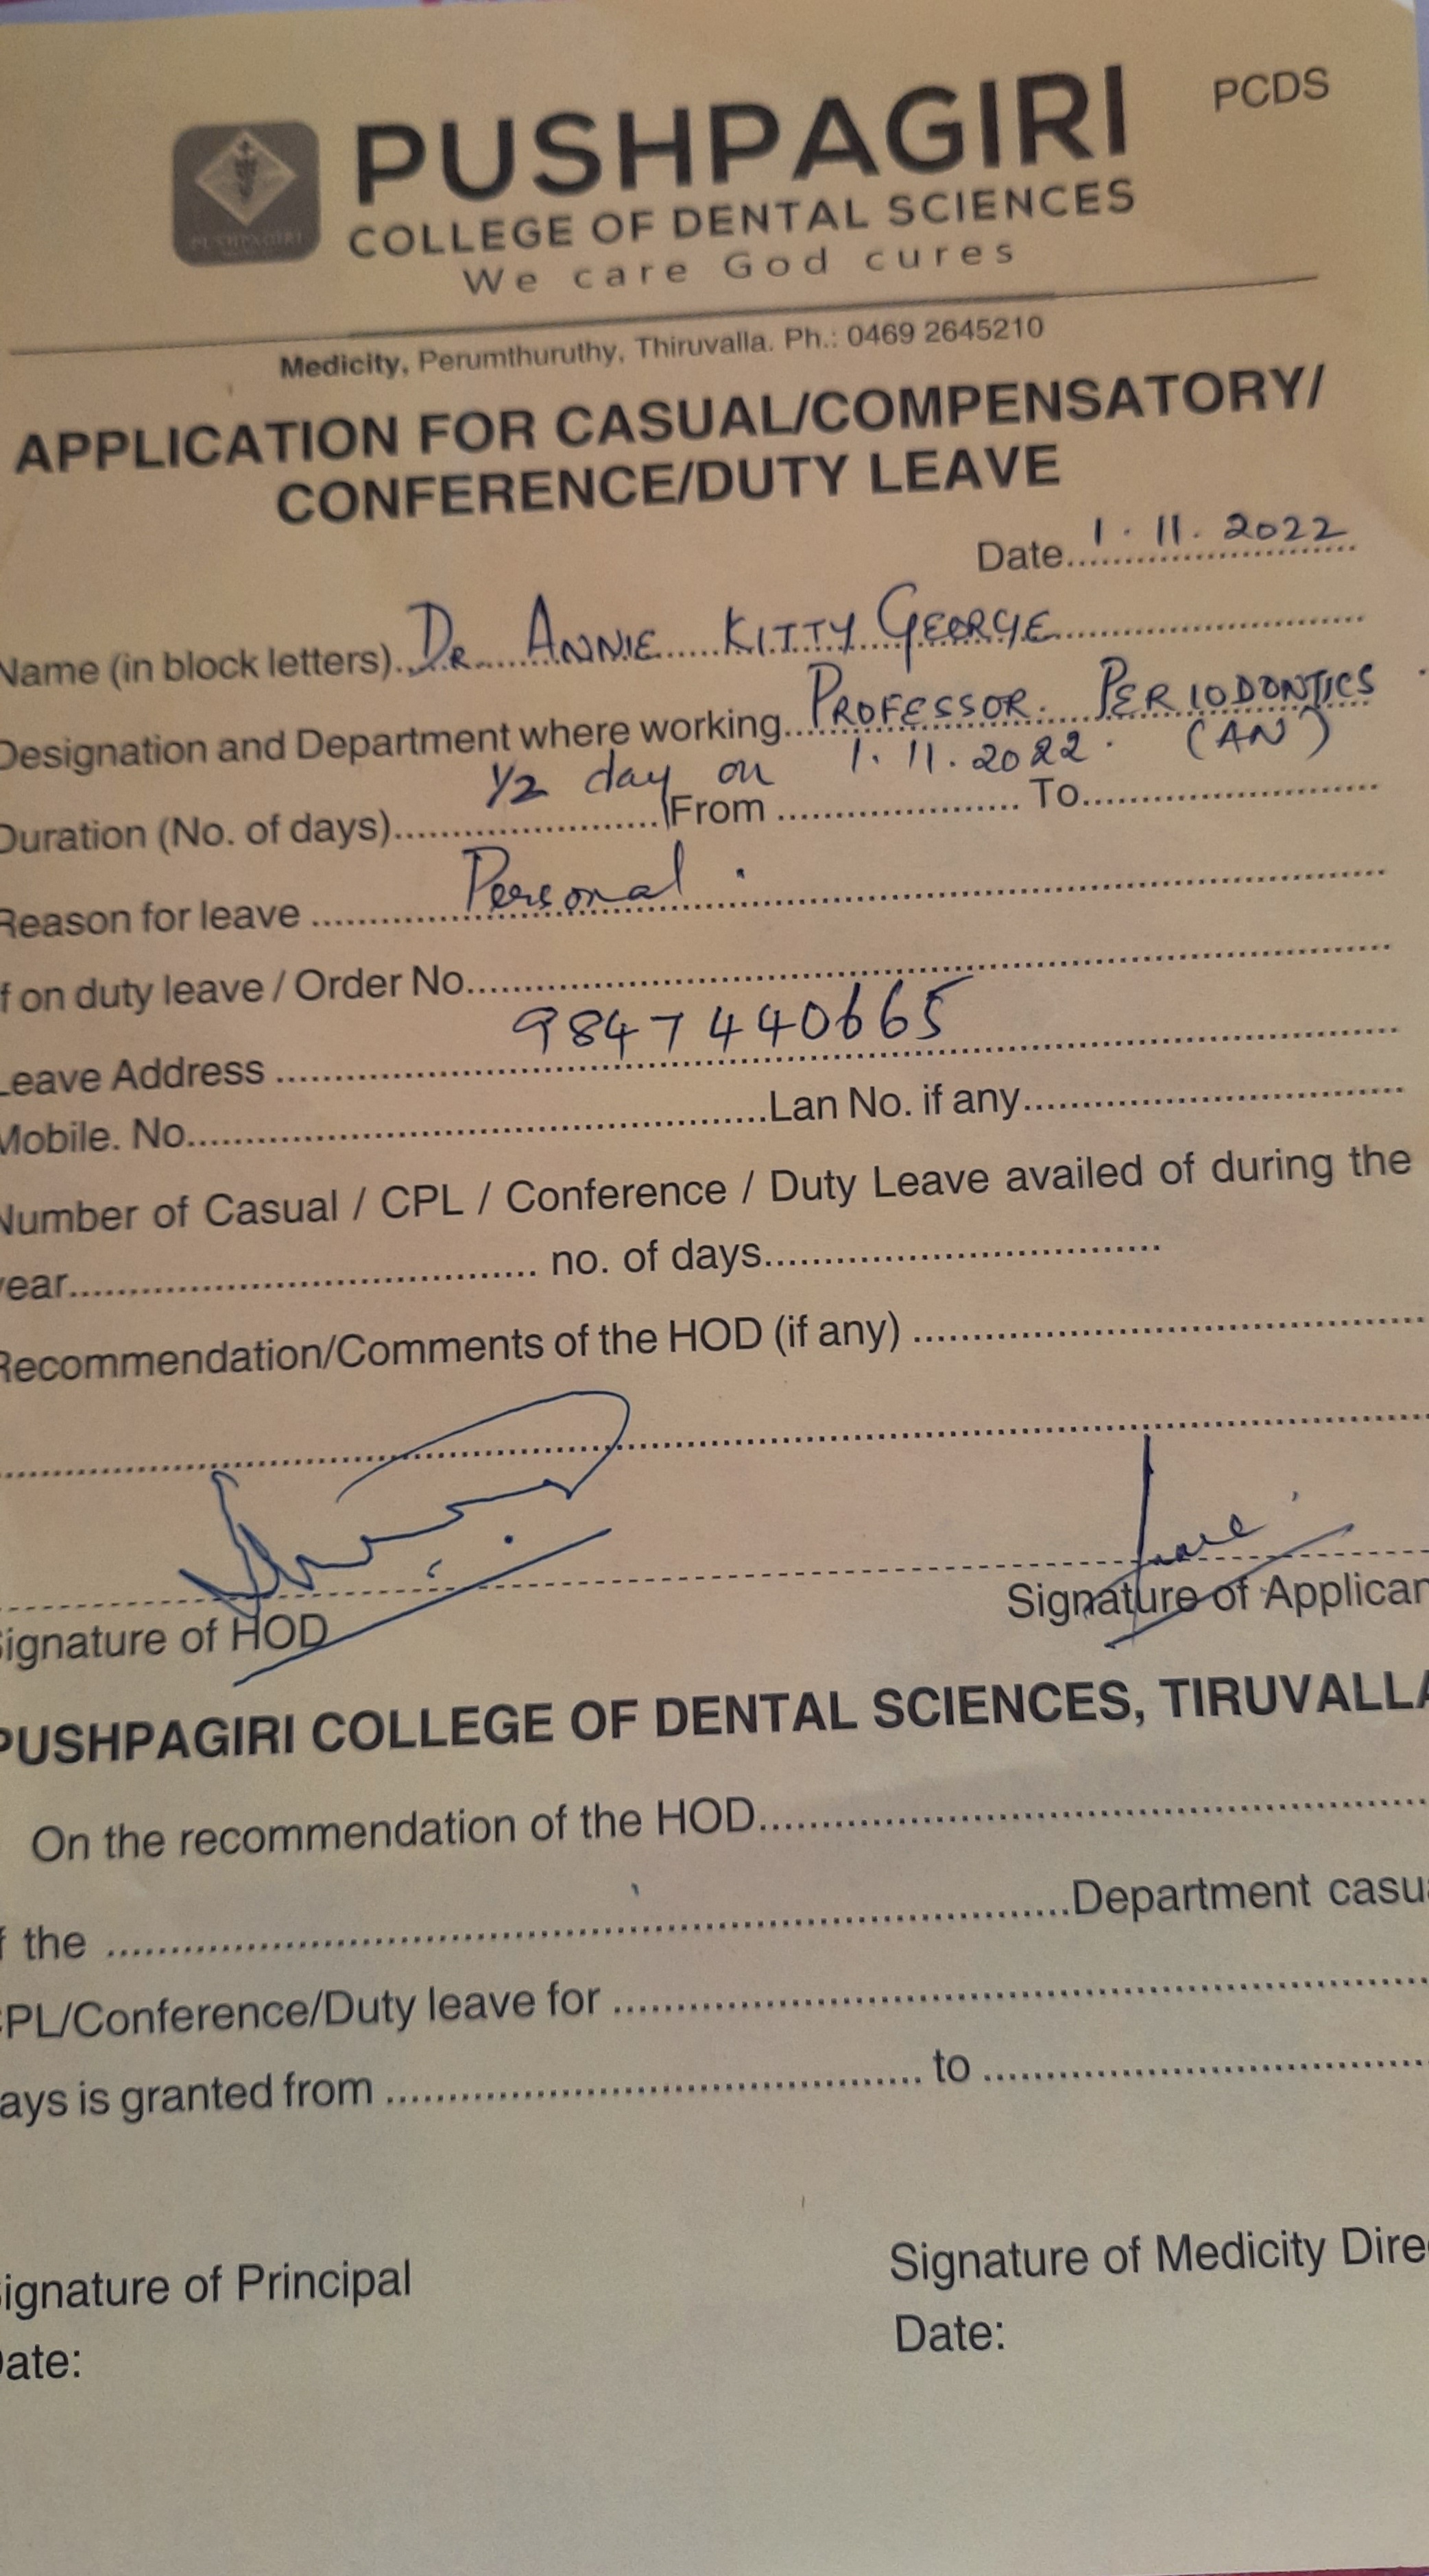 PCDS
PUSHPAGIRI
PUSHPAGIRI
COLLEGE OF DENTAL SCIENCES
We care God cures
Medicity, Perumthuruthy, Thiruvalla. Ph.: 0469 2645210
APPLICATION FOR CASUAL/COMPENSATORY/
CONFERENCE/DUTY LEAVE
Date 1.11.2022
Name (in block letters) DR ANNIE KITTY GEORGE
Designation and Department where working PROFESSOR. PERIODONTICS
1/2 day on 1.11.2022. (AN)
Duration (No. of days) From To
Reason for leave Personal.
f on duty leave / Order No.
9847440665
Leave Address
Mobile. No. Lan No. if any
Number of Casual / CPL / Conference / Duty Leave availed of during the
year no. of days
Recommendation/Comments of the HOD (if any)
Signature of HOD Signature of Applican
PUSHPAGIRI COLLEGE OF DENTAL SCIENCES, TIRUVALLA
On the recommendation of the HOD
f the Department casu
CPL/Conference/Duty leave for
ays is granted from to
Signature of Principal Signature of Medicity Dire
Date: Date: